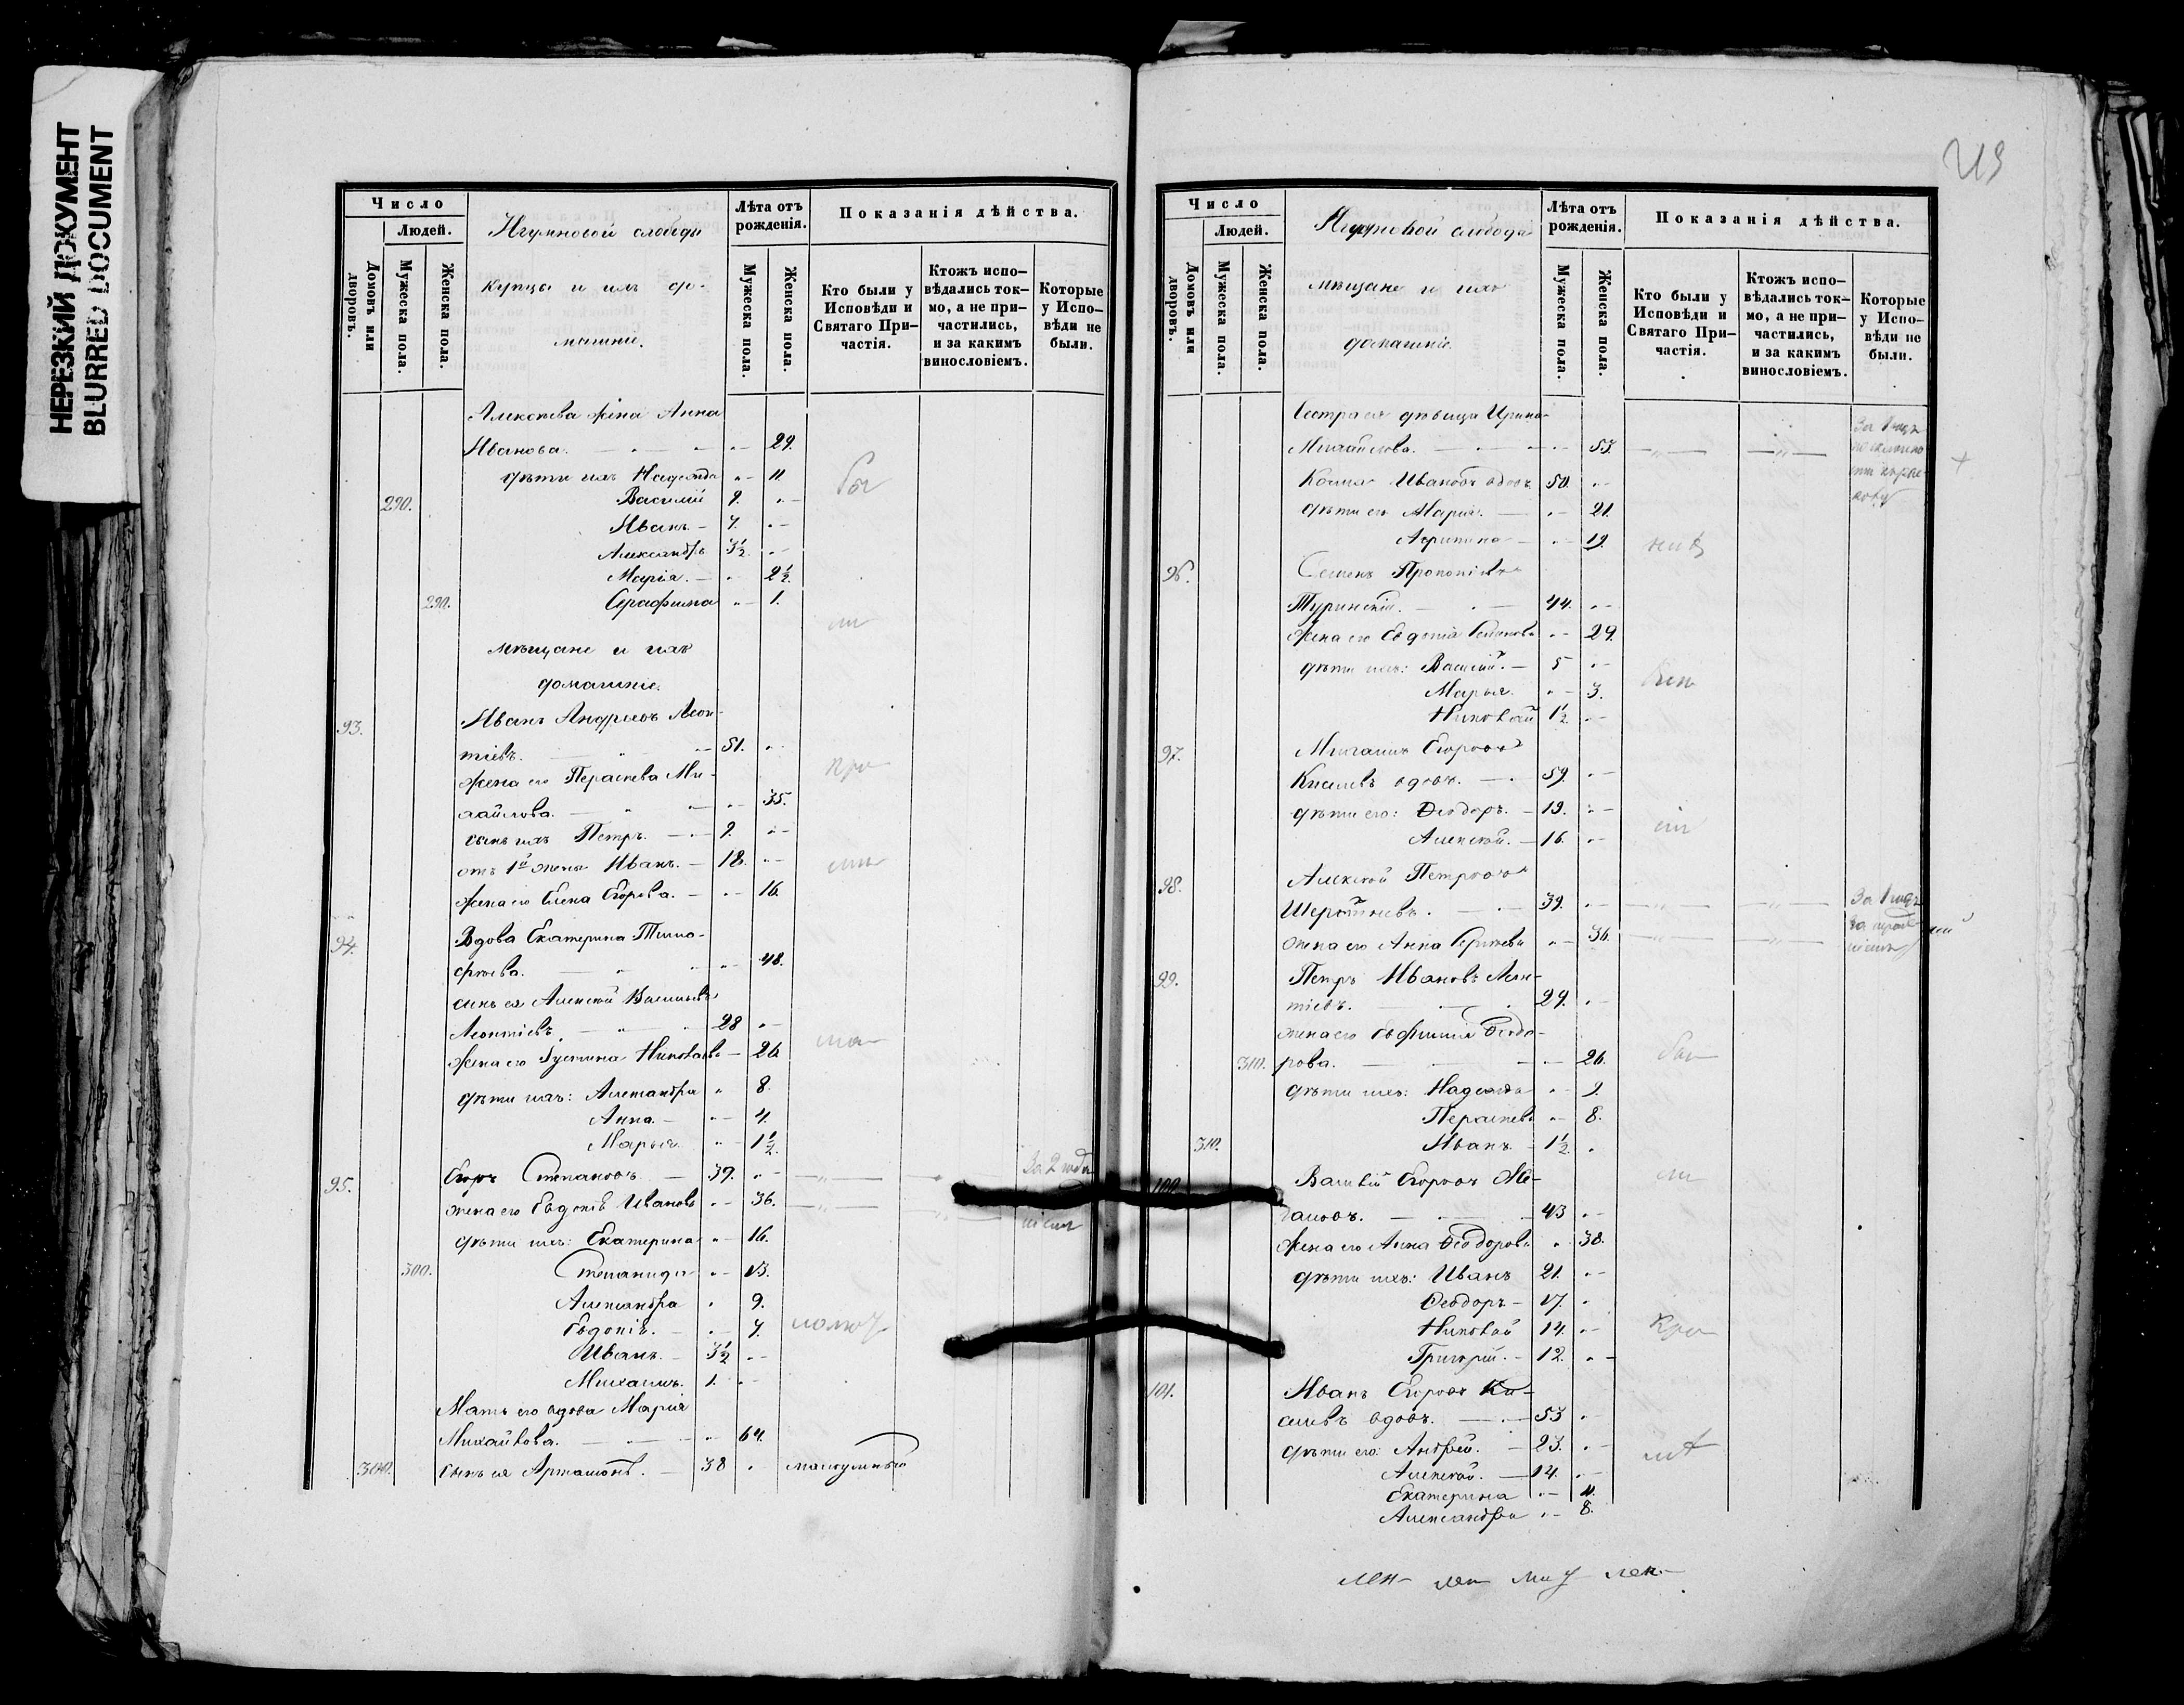 НЕРЕЗКИЙ ДОКУМЕНТ
BLURRED DOCUMENT
Число
Людей.
Домовъ или дворовъ.
Мужеска пола.
Женска пола.
слободы
купцы и ихъ до-
машніе.
Лѣта отъ рожденія.
Мужеска пола.
Женска пола.
Показанія дѣйства.
Кто были у Исповѣди и Святаго При-частія.
Ктожъ испо-вѣдались ток-мо, а не при-частились, и за какимъ винословіемъ.
Которые у Испо-вѣди не были.
Алексѣева жена Анна
Иванова. 29.
дѣти ихъ Надежда 11.
290. Василій 9.
Иванъ 7.
Александръ 3½.
Марія. 2½.
290. Серафима 1.
мѣщане и ихъ
домашніе.
93. Иванъ Андреевъ Леон-
тіевъ. 51.
Жена его Параскева Ми-
хайлова. 35.
сынъ ихъ Петръ. 9.
отъ 1й жены Иванъ. 18.
Жена его Елена Егорова. 16.
94. Вдова Екатерина Тимо-
фѣева. 48.
сынъ ея Алексѣй Васильевъ
Леонтіевъ. 28
Жена его Устина Николаева 26.
дѣти ихъ: Александра 8.
Анна. 4.
Марья. 1½.
95. Егоръ Степановъ 39. За 2 года
жена его Евдокія Иванова 36.
дѣти ихъ: Екатерина 16.
300. Степанида 13.
Александра 9.
Евдокія. 7.
Иванъ. 3½
Михаилъ. 1.
Мать его вдова Марія
Михайлова. 64.
300. сынъ ея Артамонъ. 38 малоумный
Число
Людей.
Домовъ или дворовъ.
Мужеска пола.
Женска пола.
слободы
мѣщане и ихъ
домашніе.
Лѣта отъ рожденія.
Мужеска пола.
Женска пола.
Показанія дѣйства.
Кто были у Исповѣди и Святаго При-частія.
Ктожъ испо-вѣдались ток-мо, а не при-частились, и за какимъ винословіемъ.
Которые у Испо-вѣди не были.
Сестра ея дѣвица Ирина
Михайлова. 53.
Козма Ивановъ вдовъ 50.
дѣти его Марія. 21.
19.
96. Семенъ Прокопіевъ
Туринскій. 44.
Жена его Евдокія Семенова 29.
дѣти ихъ: Василій. 5
Марья. 3.
Николай 1½.
97. Михаилъ Егоровъ
Киселевъ вдовъ. 59.
дѣти его: Ѳеодоръ. 19.
Алексѣй. 16.
98. Алексѣй Петровъ
39. За 1 годъ
жена его Анна Сергѣева 36.
99. Петръ Ивановъ Леон-
тіевъ. 29.
жена его Евфимія Ѳеодо-
310. рова. 26.
дѣти ихъ: Надежда 9.
Параскева 8.
310. Иванъ 1½.
100. Василій Егоровъ
43
Жена его Анна Ѳеодорова 38.
дѣти ихъ: Иванъ 21.
Ѳеодоръ 17.
Николай 14.
Григорій. 12.
101. Иванъ Егоровъ Ки-
селевъ вдовъ. 53
дѣти его: Андрей. 23.
Алексѣй. 14.
Екатерина 11.
Александра 8.